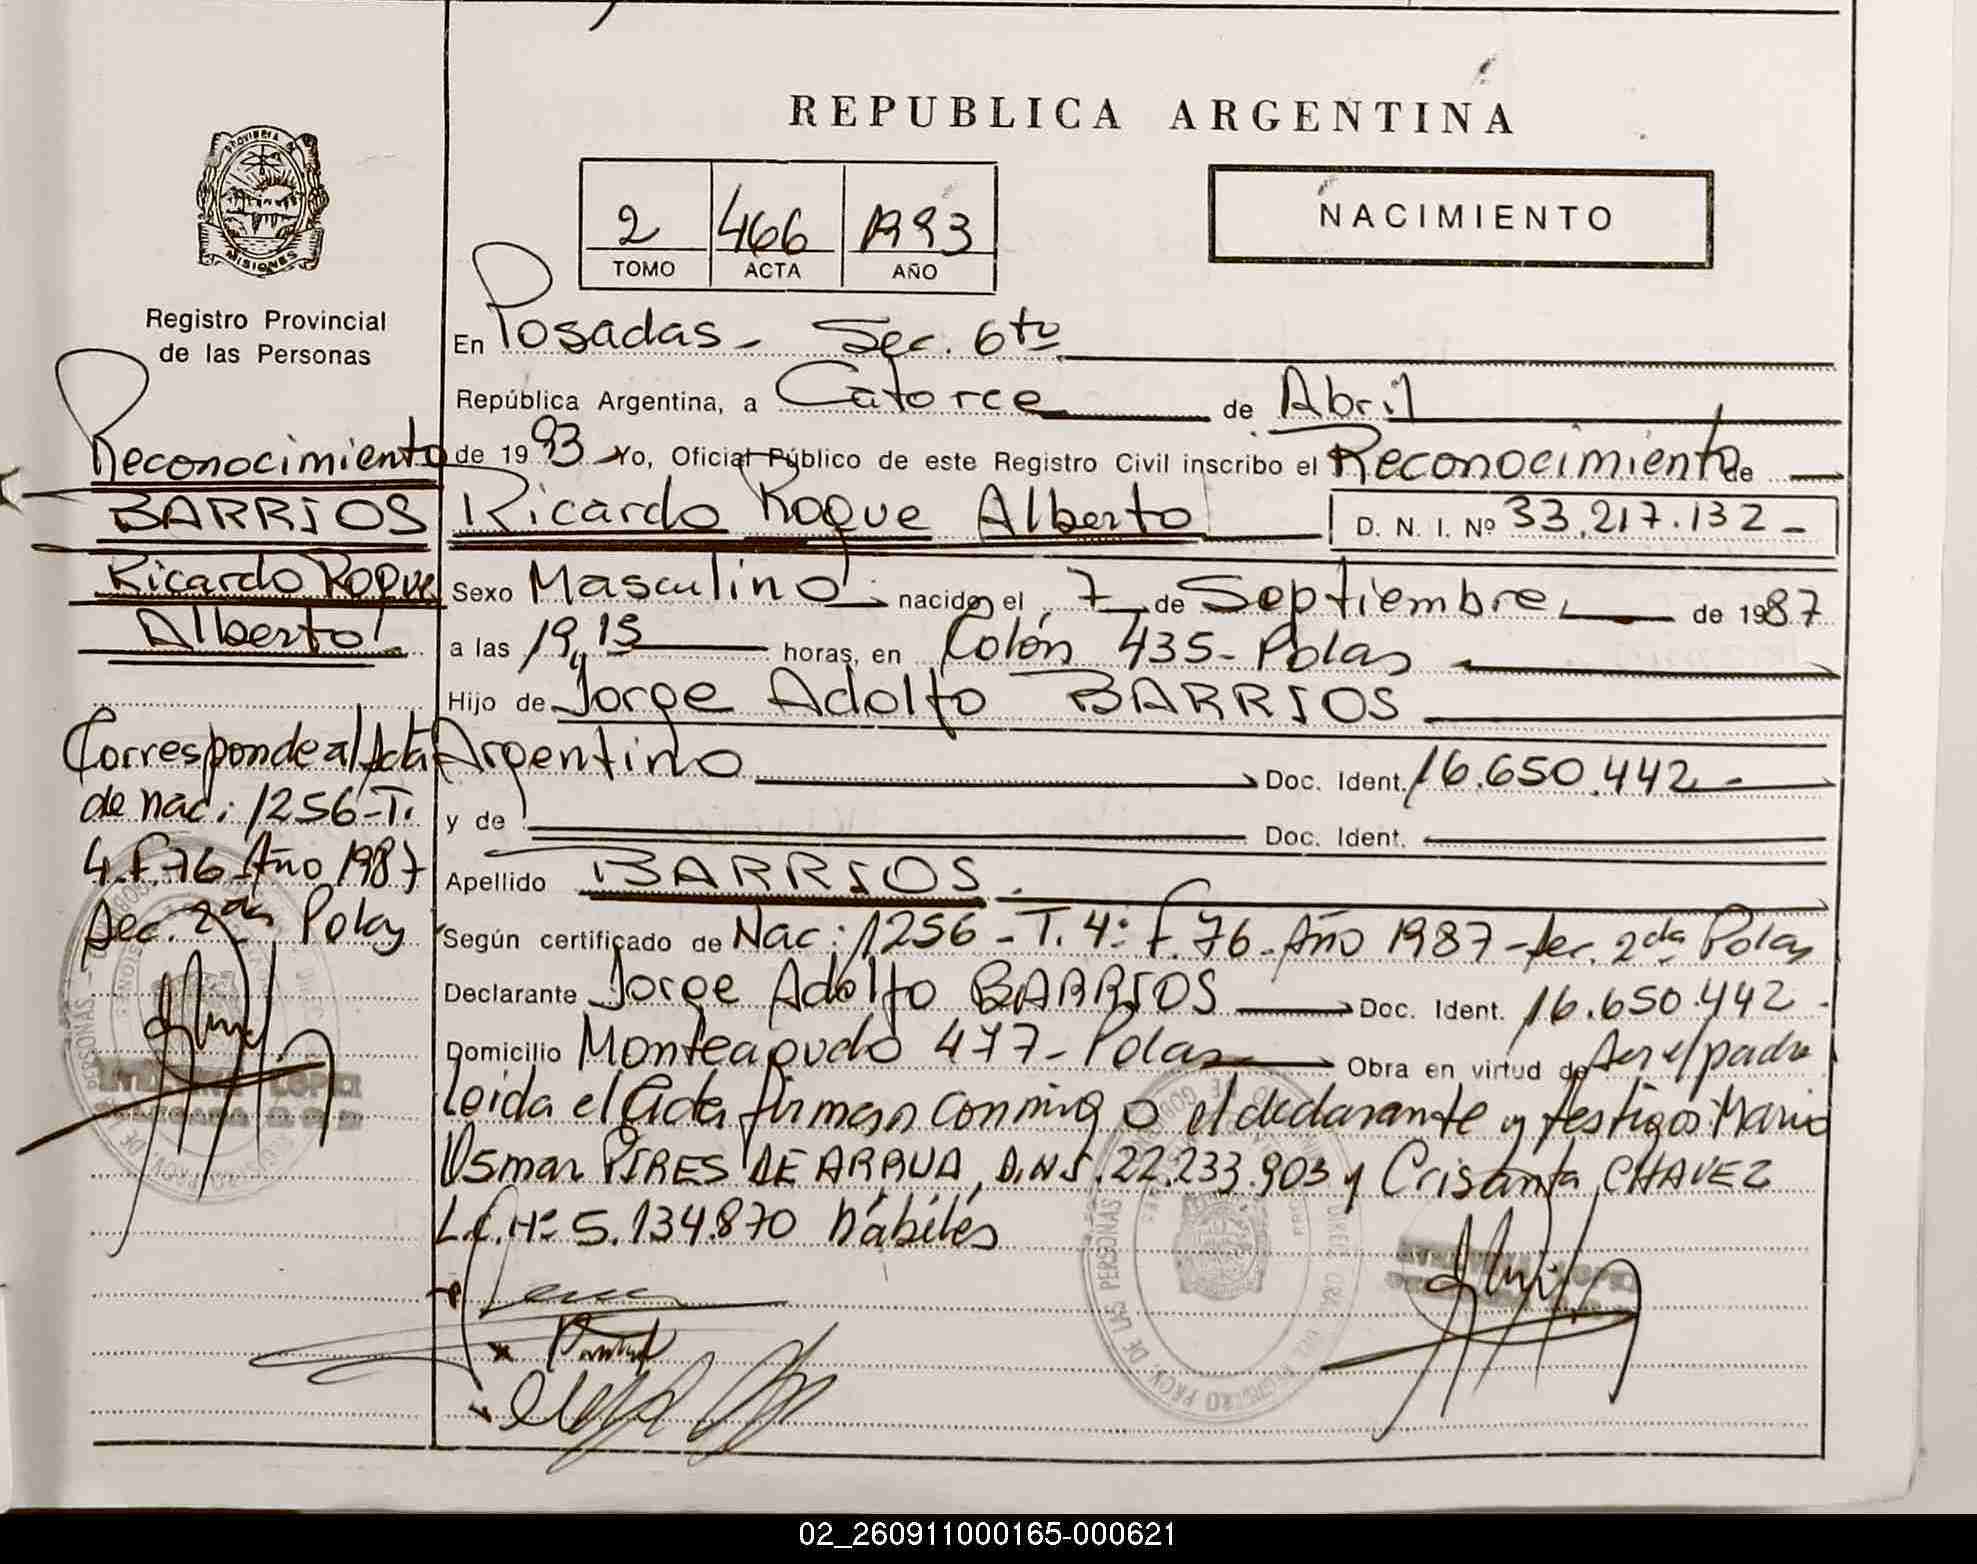 REPUBLICA ARGENTINA
2 466 1993
TOMO ACTA AÑO
NACIMIENTO
PROVINCIA DE MISIONES
Registro Provincial
de las Personas
Reconocimiento
BARRIOS
Ricardo Roque
Alberto
Corresponde al Acta
de nac: 1256-T.
4.F.76 Año 1987
Sec. 2da Pdas
En Posadas - Sec. 6ta
República Argentina, a Catorce de Abril
de 1993 Yo, Oficial Público de este Registro Civil inscribo el Reconocimiento de
Ricardo Roque Alberto D. N. I. Nº 33.217.132-
Sexo Masculino nacido el 7 de Septiembre de 1987
a las 19,15 horas, en Colón 435- Pdas
Hijo de Jorge Adolfo BARRIOS
Argentino Doc. Ident. 16.650.442-
y de Doc. Ident.
Apellido BARRIOS.
Según certificado de Nac: 1256 - T. 4: F. 76- Año 1987 - Sec. 2da Pdas
Declarante Jorge Adolfo BARRIOS Doc. Ident. 16.650.442-
Domicilio Monteagudo 477- Pdas Obra en virtud de Ser el padre
Leida el Acta firman conmigo el declarante y testigos Mario
Osmar PIRES DE ARRUA, D.N.I. 22.233.903 y Crisanta CHAVEZ
L.C. Nº 5.134.870 hábiles
02_260911000165-000621